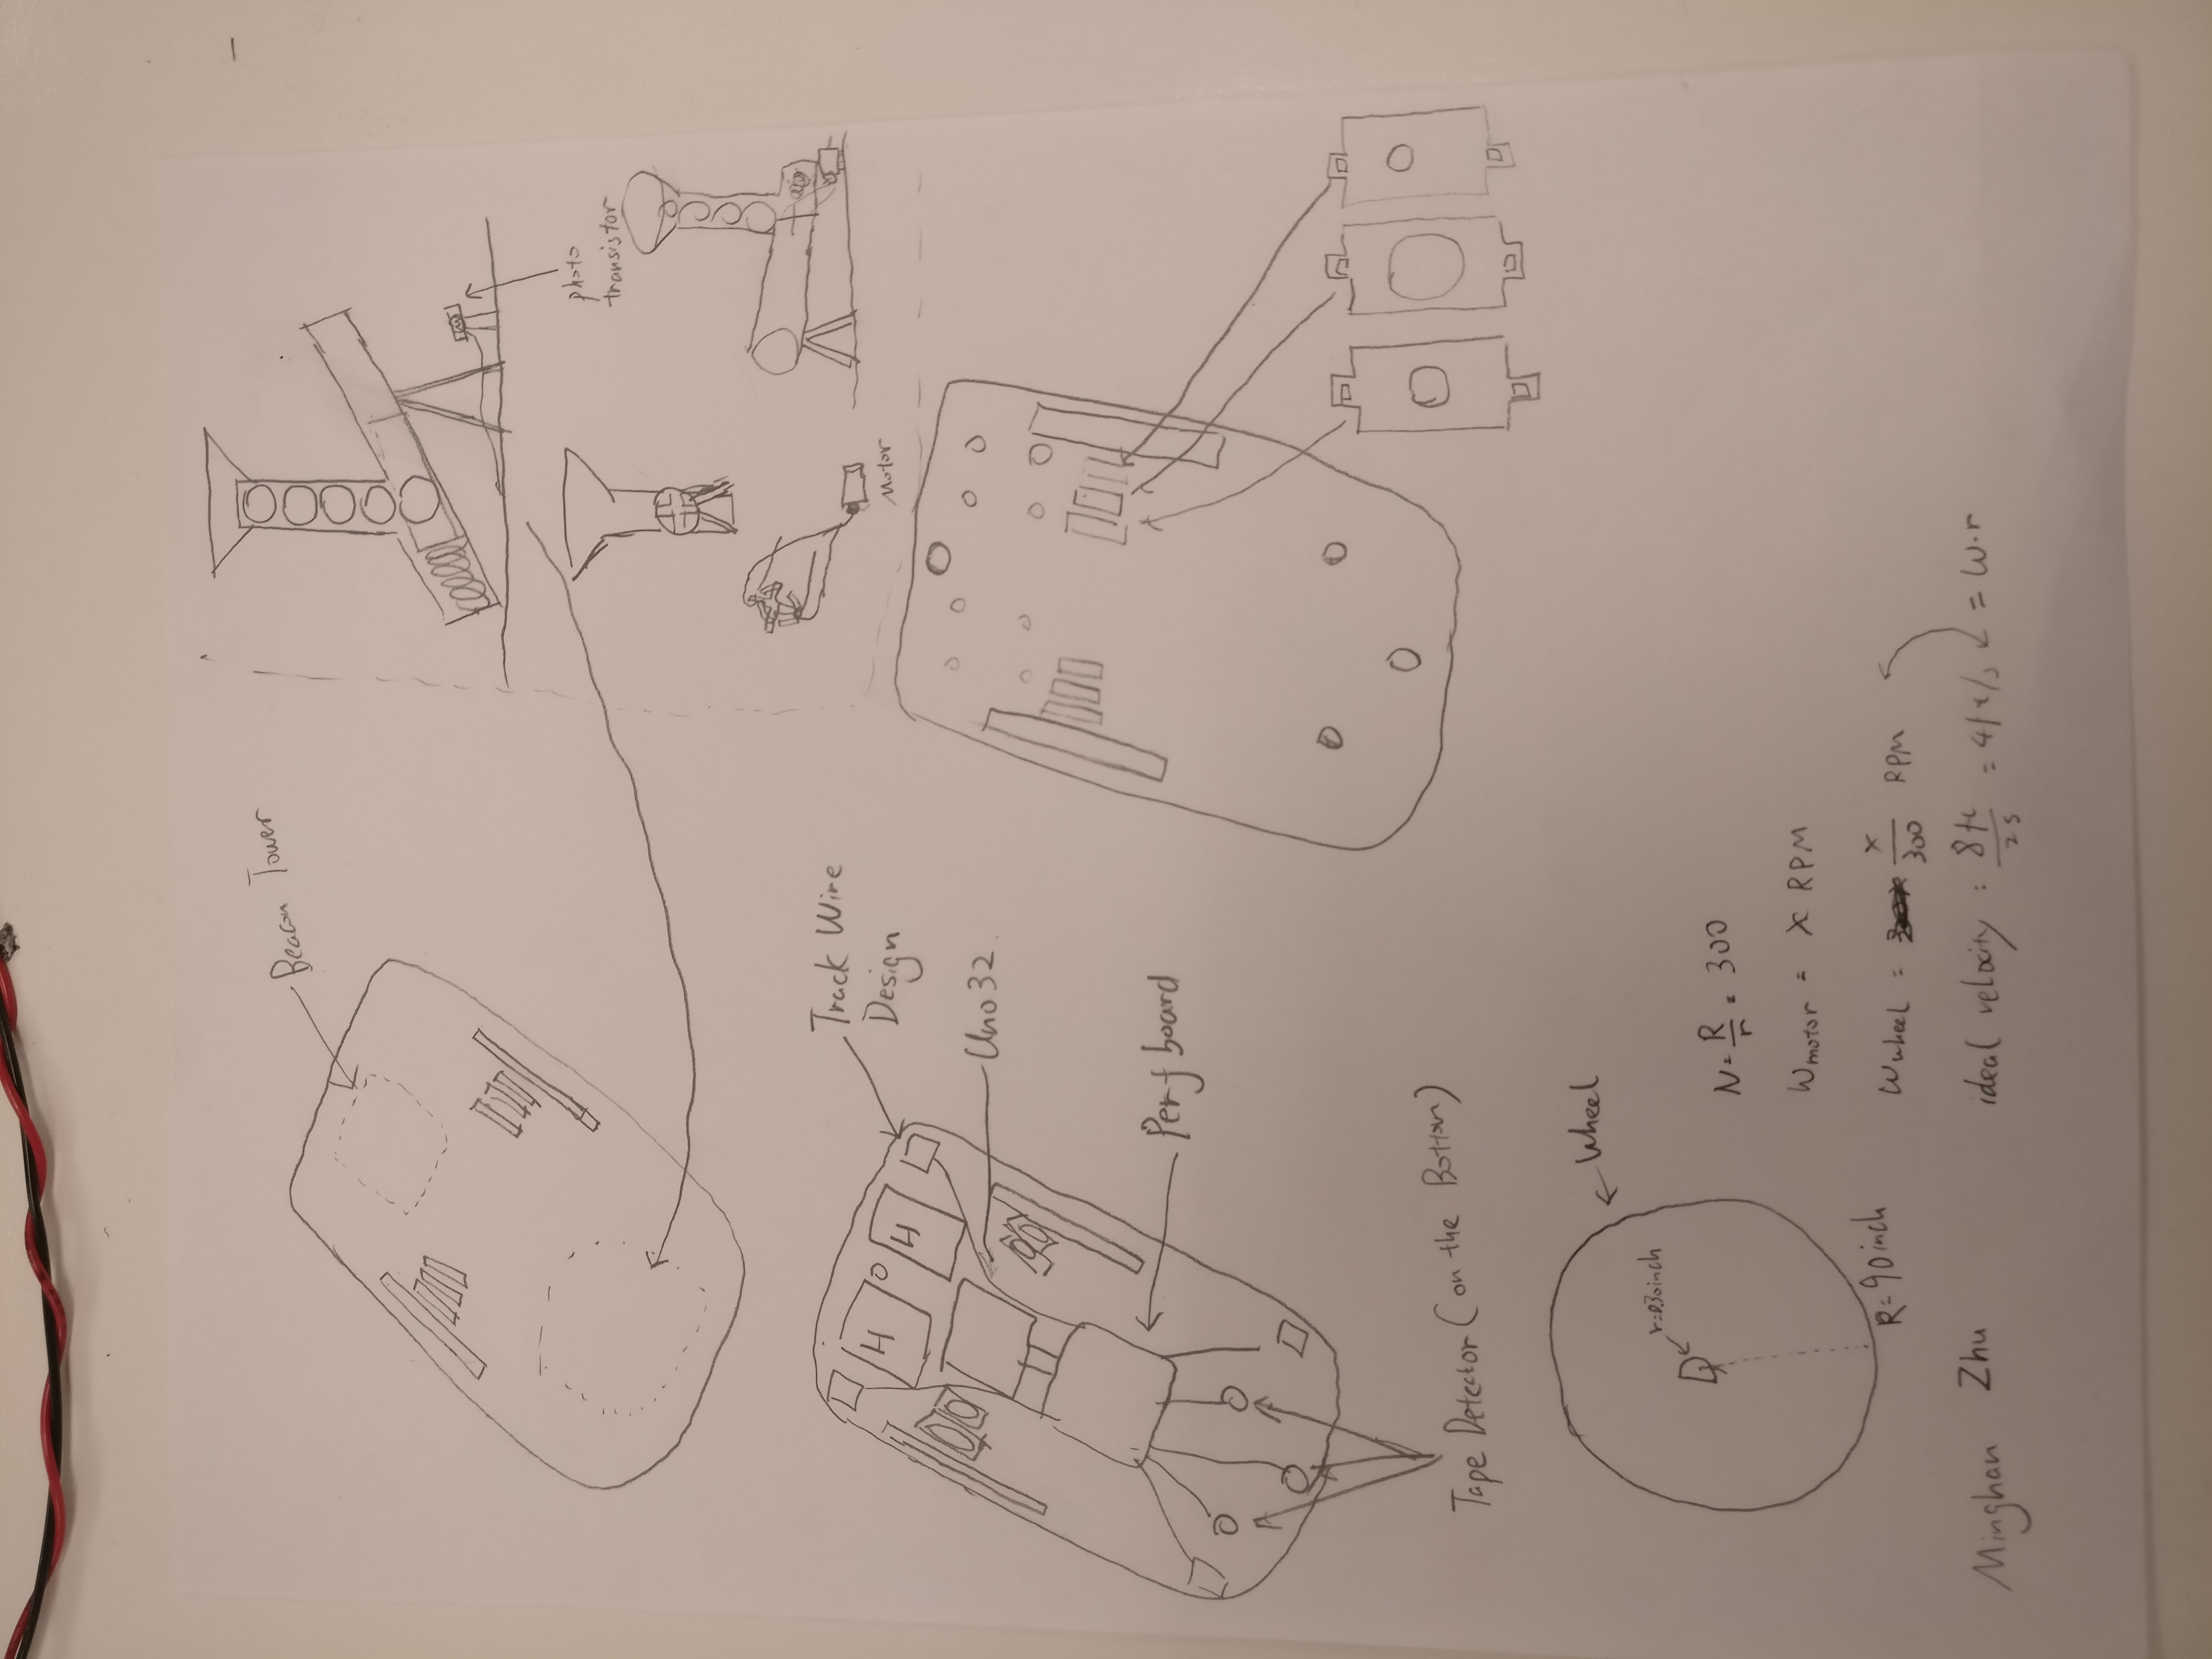 Beacon Tower
photo
transistor
Motor
Track Wire
Design
H
H
Uno 32.
Perf board
Tape Detector (on the Bottom)
Wheel
r=0.30inch
R=90inch
N = R/r = 300
Wmotor = X RPM
Wwheel = X/300 RPM
ideal velocity : 8ft/2s = 4ft/s = W·r
Minghan Zhu